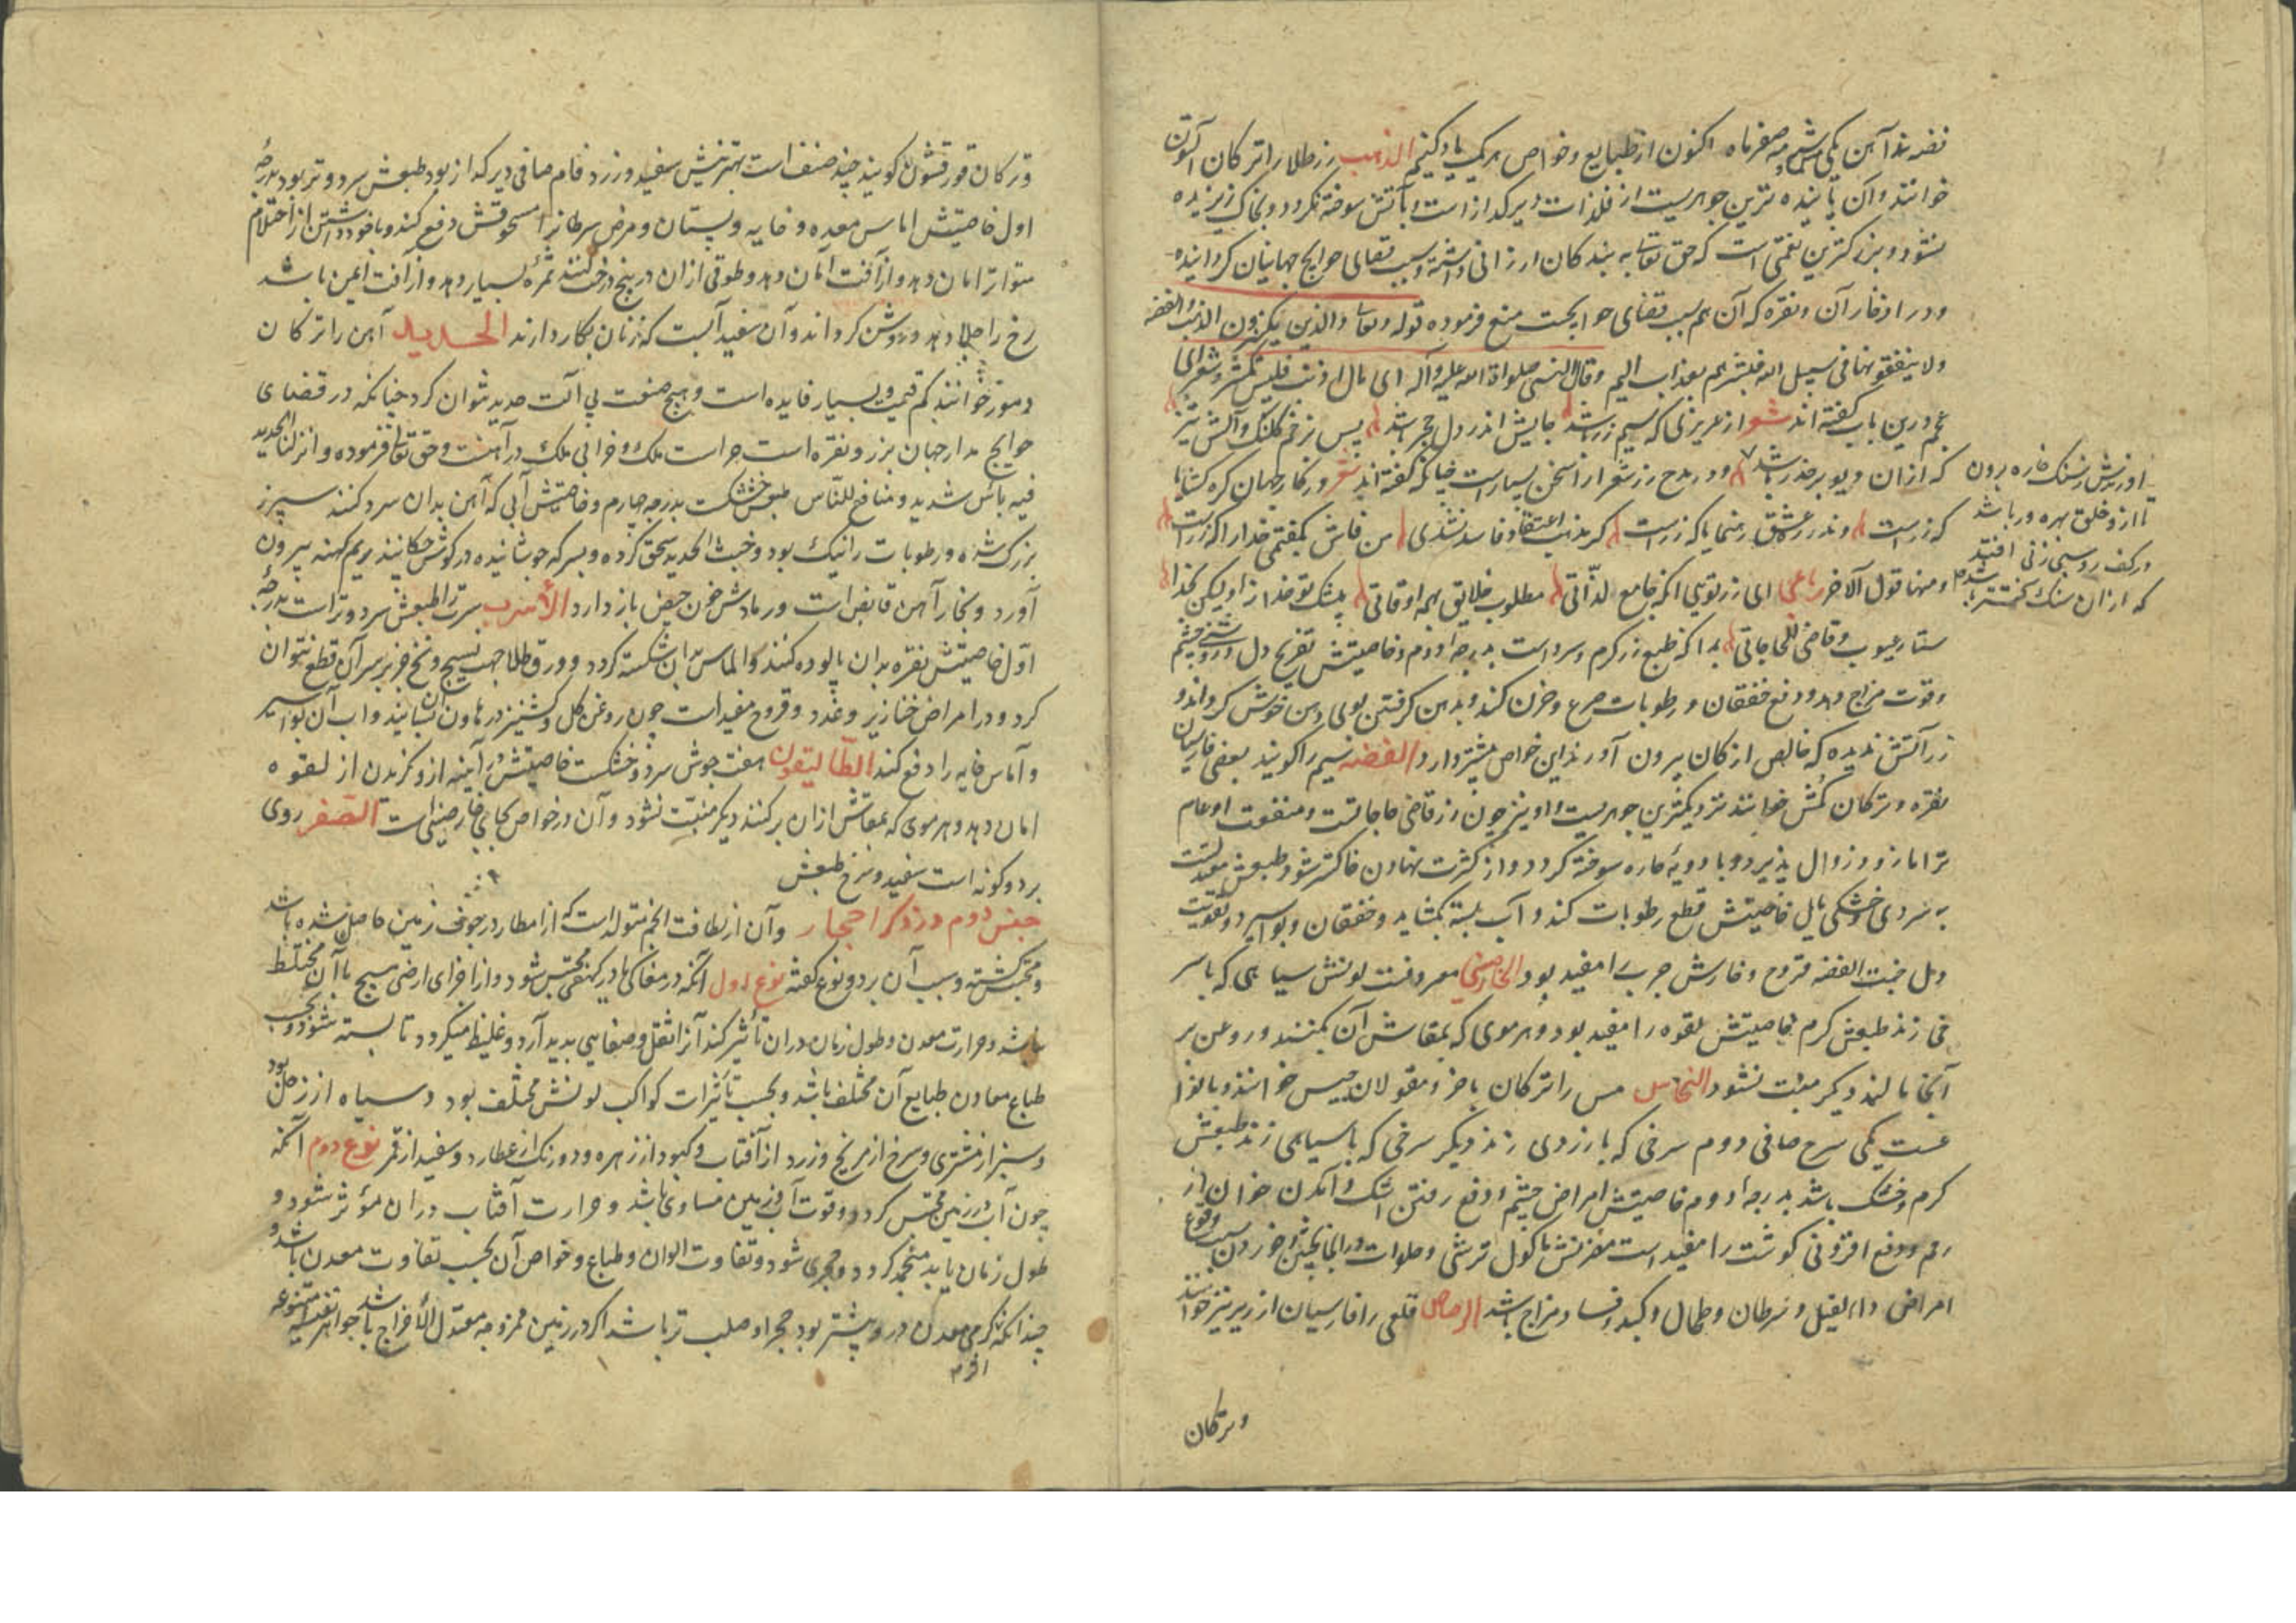 فضه ند آهن یکی مس و شبه صفر ماه اکنون از طبایع و خواص هر یک یاد کنیم الذهب زر طلا را ترکان آلتون
خوانند و آن پاینده ترین جوهریست از فلذات دیر کدازست و بآتش سوخته نکردد و بخاک ریزیده
نشود و بزرکترین نعمتی است که حق تعالی به بندکان ارزانی داشته و سبب قضای حوایج جهانیان کردانیده
و در ادخار آن و نقره که آن هم سبب قضای حوایجست منع فرموده قوله تعالی والذین یکنزون الذهب والفضه
ولا ینفقونها فی سبیل الله فبشرهم بعذاب الیم وقال النبی صلواة الله علیه وآله ای مال ادیت فلیس بکنز و شعرای
عجم درین باب کفته اند شعر از عزیزی که سیم و زر باشد جایش اندر دل حجر باشد پس بزخم کلنک و آتش تیز
که از ان دیو بر حذر باشد و در مدح زر شعرا را سخن بسیارست چنانکه کفته اند شعر در کار جهان کره کشا
که زرست و ندر ره عشق رهنما یا که زرست کر مذهب و اعتقاد فاسد نشدی من فاش بکفتمی خدا را که زرست
و منها قول الآخر رباعی ای زر توئی انکه جامع لذّاتی مطلوب خلایق بهمه اوقاتی بیشک تو خدا نه و لیکن بخدا
ستار عیوب و قاضی الحاجاتی بدانکه طبع زر کرم و سرد است بدرجه دوم و خاصیتش تفریح دل و روشنی چشم
و قوت مزاج دهد و دفع خفقان و رطوبات صرع و حزن کند و بدهن کرفتن بوی دهن خوش کرداند و
زر آتش ندیده که خالص از کان بیرون آورند این خواص بیشتر دارد الفضه سیم را کویند بعضی فارسیان
نقره و ترکان کمش خوانند نزدیکترین جوهریست و او نیز چون زر قاضی حاجاتست و منفعت او عام
تر اما زود زوال پذیرد و با دویهٔ حاره سوخته کردد و از کثرت نهادن خاکستر شود طبعش معتدلست
به سردی و خشکی مایل خاصیتش قطع رطوبات کند و آب بسته بکشاید و خفقان و بواسیر و تقویت
دل خبث الفضه قروح و خارش جرب را مفید بود الخارصینی معروفست لونش سیاهی که با سر
خی زند طبعش کرم بخاصیتش لقوه را مفید بود و هر موی که بمقاش آن بکنند و روغن بر
آنجا مالند دیکر منبت نشود النحاس مس را ترکان باخر و مغولان جیس خوانند و بانواع
عست یکی سرخ صافی دوم سرخی که با زردی زند دیکر سرخی که با سیاهی زند طبعش
کرم و خشک باشد بدرجه دوم خاصیتش امراض چشم و دفع رفتن اشک و آمدن خوان از
رحم و دفع افزونی کوشت را مفید است مضرتش ماکول ترشی و حلوات در آنجا پختن و خوردن سبب وقوع
امراض داء الفیل و سرطان و طحال و کبد و فساد مزاج باشد الرصاص قلعی را فارسیان ارزیز نیز خوانند
وترکان
او زبیش ز سنک خاره برون
تا از و خلق بهره ور باشد
در کف روسبی زنی افتد
که از ان سنک کمتر باشد
و ترکان قورقشون کویند چند صنف است بهترینش سفید و زرد فام صافی دیر کداز بود طبعش سرد و تر بود بدرجهٔ
اول خاصیتش اماس معده و خایه و پستان و مرض سرطان را مسحوقش دفع کند و با خود داشتن از احتلام
متواتر امان دهد و از آفت امان دهد و طوقی از ان در بیخ درخت کنند ثمره بسیار دهد و از آفت ایمن باشد
رخ را جلا دهد و روشن کرداند و آن سفید آبست که زنان بکار دارند الحدید آهن را ترکان
دمور خوانند کم قیمت و بسیار فایده است و هیچ صنعت بی آلت حدید نتوان کرد چنانکه در قضای
حوایج مدار جهان بزر و نقره است حراست ملک و خرابی ملک در آهنست و حق تعالی فرموده وانزلنا الحدید
فیه بأس شدید و منافع للناس طبعش خشکست بدرجه چهارم و خاصیتش آبی که آهن بدان سرد کنند سپرز
بزرک شده و رطوبات را نیک بود و خبث الحدید سحق کرده و بسرکه جوشانیده در کوش چکانیند ریم کهنه بیرون
آورد و بخار آهن قابض است و رمادش خون حیض باز دارد الأسرب سرب را طبعش سرد و تر است بدرجهٔ
اوّل خاصیتش نقره بدان پالوده کنند و الماس بدان شکسته کردد و ورق طلا جهت نسیج و نخ جز بر سر آن قطع نتوان
کرد و در امراض خنازیر و غدد و قروح مفید است چون روغن کل و کشنیز در هاون آن بسایند و اب آن بواسیر
و آماس خایه را دفع کند الطالیقون هفت جوش سرد و خشکست خاصیتش در آیینه از و کزیدن از لقوه
امان دهد و هر موی که بمقاش از ان بر کنند دیکر منبّت نشود و آن در خواص بجای خارصینی است الصفر روی
بر دو کونه است سفید و سرخ طبعش
جنس دوم در ذکر احجار و آن از لطافت الجم متولد است که از امطار در جوف زمین حاصل شده باشد
و محتبس کشته و سبب آن بر دو نوع کفته نوع اول آنکه در مغاکی یا در کهفی محتبس شود و از اجزای ارضی هیچ با آن مختلط
باشد و حرارت معدن و طول زمان در ان تأثیر کند آنرا ثقل و صفایی پدید آرد و غلیظ میکردد تا بسته شود و بحسب
طباع معادن طبایع آن مختلف باشد و بحسب تأثیرات کواکب لونش مختلف بود سیاه از زحل بود
و سبز از مشتری و سرخ از مریخ و زرد از آفتاب و کبود از زهره و دو رنک از عطارد و سفید از قمر نوع دوم آنکه
چون آب در زمین محتبس کردد و قوت آب و زمین مساوی باشد و حرارت آفتاب در ان مؤثر شود و
طول زمان یابد منجمد کردد و حجری شود و تفاوت الوان و طباع و خواص آن بحسب تفاوت معدن باشد و
چندانکه کرمی معدن در و بیشتر بود حجر او صلب تر باشد اکر در زمین ممزوجه معتدل الأخراج باشد جواهر نفیسه متنوعه